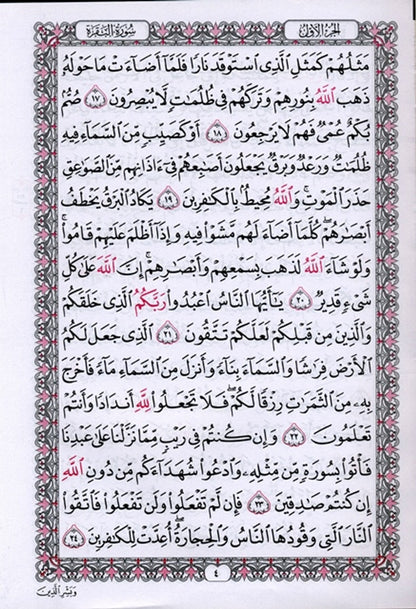 الجزء الأول
سورة البقرة
مَثَلُهُمْ كَمَثَلِ الَّذِى اسْتَوْقَدَ نَارًا فَلَمَّا أَضَاءَتْ مَا حَوْلَهُ
ذَهَبَ اللَّهُ بِنُورِهِمْ وَتَرَكَهُمْ فِى ظُلُمَاتٍ لَّا يُبْصِرُونَ ١٧ صُمٌّ
بُكْمٌ عُمْىٌ فَهُمْ لَا يَرْجِعُونَ ١٨ أَوْ كَصَيِّبٍ مِّنَ السَّمَاءِ فِيهِ
ظُلُمَاتٌ وَرَعْدٌ وَبَرْقٌ يَجْعَلُونَ أَصَابِعَهُمْ فِى ءَاذَانِهِم مِّنَ الصَّوَاعِقِ
حَذَرَ الْمَوْتِ ۚ وَاللَّهُ مُحِيطٌ بِالْكَافِرِينَ ١٩ يَكَادُ الْبَرْقُ يَخْطَفُ
أَبْصَارَهُمْ ۖ كُلَّمَا أَضَاءَ لَهُم مَّشَوْا فِيهِ وَإِذَا أَظْلَمَ عَلَيْهِمْ قَامُوا ۚ
وَلَوْ شَاءَ اللَّهُ لَذَهَبَ بِسَمْعِهِمْ وَأَبْصَارِهِمْ ۚ إِنَّ اللَّهَ عَلَىٰ كُلِّ
شَىْءٍ قَدِيرٌ ٢٠ يَا أَيُّهَا النَّاسُ اعْبُدُوا رَبَّكُمُ الَّذِى خَلَقَكُمْ
وَالَّذِينَ مِن قَبْلِكُمْ لَعَلَّكُمْ تَتَّقُونَ ٢١ الَّذِى جَعَلَ لَكُمُ
الْأَرْضَ فِرَاشًا وَالسَّمَاءَ بِنَاءً وَأَنزَلَ مِنَ السَّمَاءِ مَاءً فَأَخْرَجَ
بِهِ مِنَ الثَّمَرَاتِ رِزْقًا لَّكُمْ ۖ فَلَا تَجْعَلُوا لِلَّهِ أَندَادًا وَأَنتُمْ
تَعْلَمُونَ ٢٢ وَإِن كُنتُمْ فِى رَيْبٍ مِّمَّا نَزَّلْنَا عَلَىٰ عَبْدِنَا
فَأْتُوا بِسُورَةٍ مِّن مِّثْلِهِ وَادْعُوا شُهَدَاءَكُم مِّن دُونِ اللَّهِ
إِن كُنتُمْ صَادِقِينَ ٢٣ فَإِن لَّمْ تَفْعَلُوا وَلَن تَفْعَلُوا فَاتَّقُوا
النَّارَ الَّتِى وَقُودُهَا النَّاسُ وَالْحِجَارَةُ ۖ أُعِدَّتْ لِلْكَافِرِينَ ٢٤
٤
وَبَشِّرِ الَّذِينَ